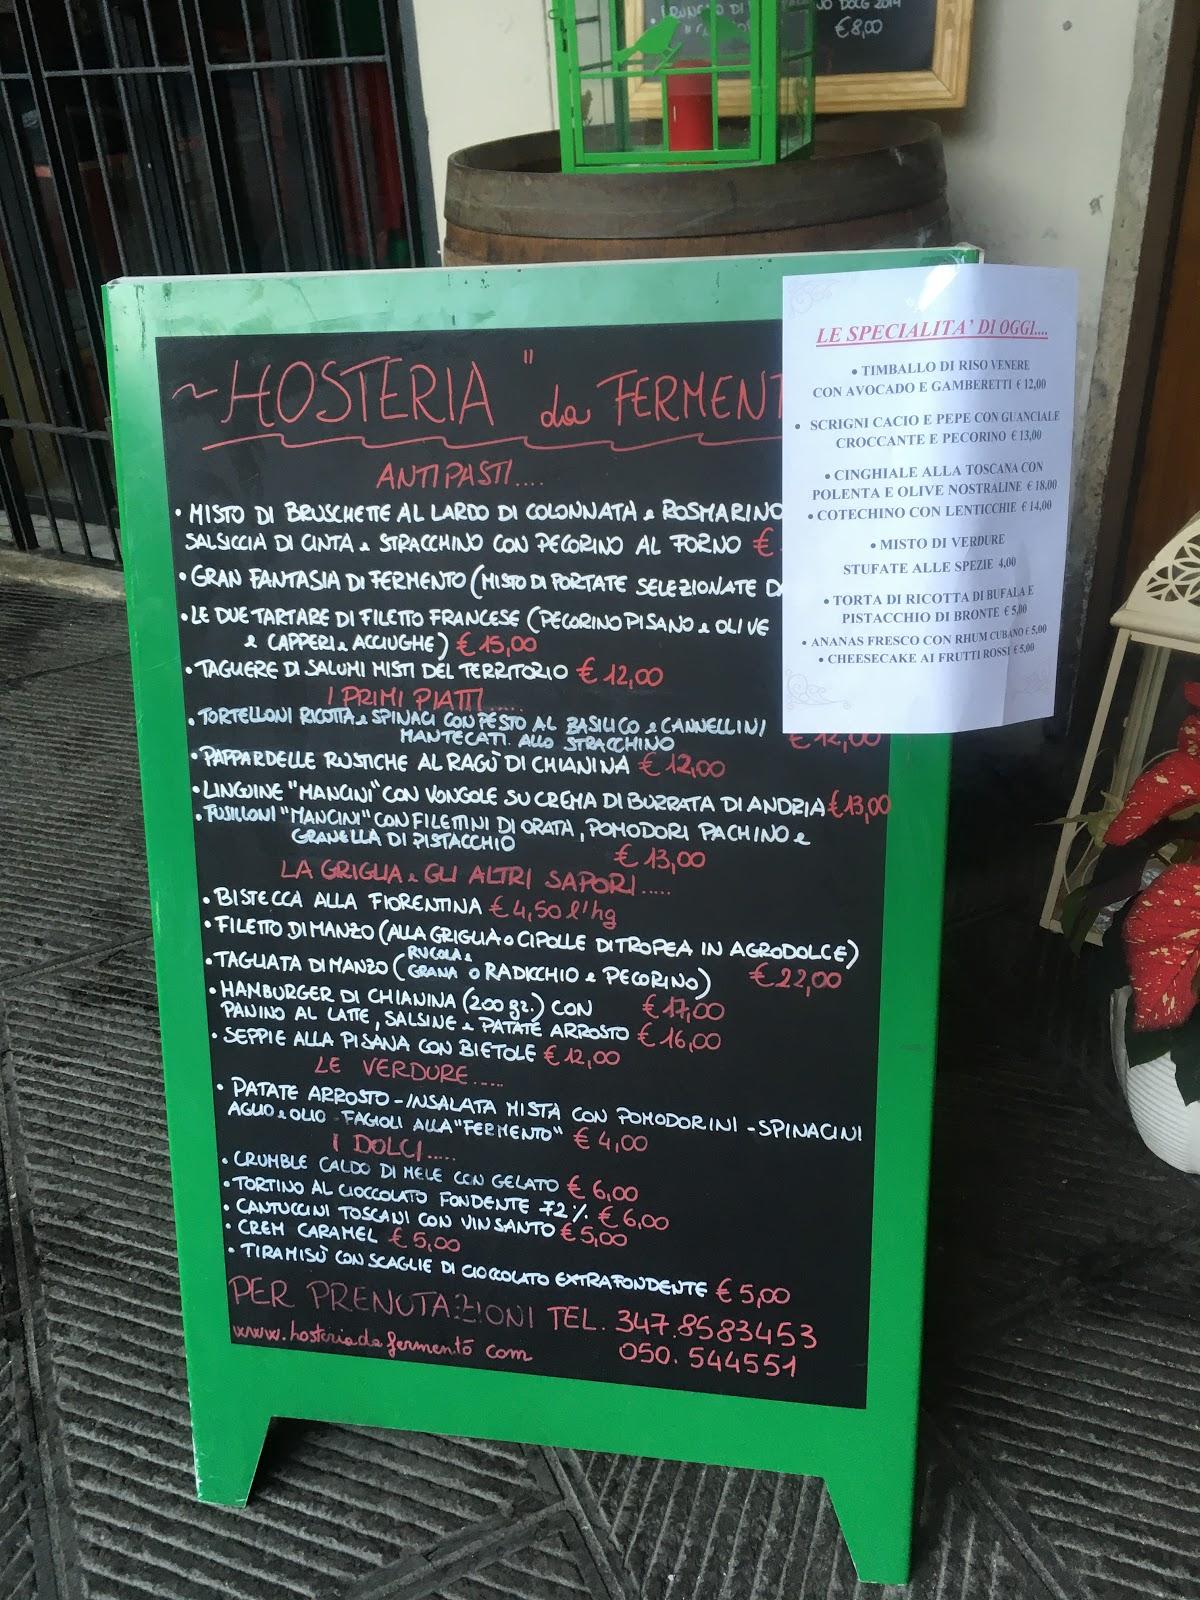 DOCG 2014
€8,00
~HOSTERIA "da FERMENT
ANTIPASTI....
• MISTO DI BRUSCHETTE AL LARDO DI COLONNATA e ROSMARINO
SALSICCIA DI CINTA e STRACCHINO CON PECORINO AL FORNO €
• GRAN FANTASIA DI FERMENTO (MISTO DI PORTATE SELEZIONATE D
• LE DUE TARTARE DI FILETTO FRANCESE (PECORINO PISANO e OLIVE
e CAPPERI e ACCIUGHE) € 15,00
• TAGLIERE DI SALUMI MISTI DEL TERRITORIO € 12,00
I PRIMI PIATTI.....
• TORTELLONI RICOTTA e SPINACI CON PESTO AL BASILICO e CANNELLINI
MANTECATI ALLO STRACCHINO € 12,00
• PAPPARDELLE RUSTICHE AL RAGÙ DI CHIANINA € 12,00
• LINGUINE "MANCINI" CON VONGOLE SU CREMA DI BURRATA DI ANDRIA €13,00
• FUSILLONI "MANCINI" CON FILETTINI DI ORATA, POMODORI PACHINO e
GRANELLA DI PISTACCHIO € 13,00
LA GRIGLIA e GLI ALTRI SAPORI.....
• BISTECCA ALLA FIORENTINA € 4,50 l'hg
• FILETTO DI MANZO (ALLA GRIGLIA o CIPOLLE DI TROPEA IN AGRODOLCE) € 22,00
• TAGLIATA DI MANZO (RUCOLA e GRANA o RADICCHIO e PECORINO) € 17,00
• HAMBURGER DI CHIANINA (200 gr.) CON
PANINO AL LATTE, SALSINE e PATATE ARROSTO € 16,00
• SEPPIE ALLA PISANA CON BIETOLE € 12,00
LE VERDURE.....
• PATATE ARROSTO - INSALATA MISTA CON POMODORINI - SPINACINI
AGLIO e OLIO - FAGIOLI ALLA "FERMENTO" € 4,00
I DOLCI.....
• CRUMBLE CALDO DI MELE CON GELATO € 6,00
• TORTINO AL CIOCCOLATO FONDENTE 72% € 6,00
• CANTUCCINI TOSCANI CON VIN SANTO € 5,00
• CREM CARAMEL € 5,00
• TIRAMISÙ CON SCAGLIE DI CIOCCOLATO EXTRAFONDENTE € 5,00
PER PRENOTAZIONI TEL. 347.8583453
050.544551
www.hosteriadafermento com
LE SPECIALITA' DI OGGI....
• TIMBALLO DI RISO VENERE
CON AVOCADO E GAMBERETTI € 12,00
• SCRIGNI CACIO E PEPE CON GUANCIALE
CROCCANTE E PECORINO € 13,00
• CINGHIALE ALLA TOSCANA CON
POLENTA E OLIVE NOSTRALINE € 18,00
• COTECHINO CON LENTICCHIE € 14,00
• MISTO DI VERDURE
STUFATE ALLE SPEZIE 4,00
• TORTA DI RICOTTA DI BUFALA E
PISTACCHIO DI BRONTE € 5,00
• ANANAS FRESCO CON RHUM CUBANO € 5,00
• CHEESECAKE AI FRUTTI ROSSI € 5,00